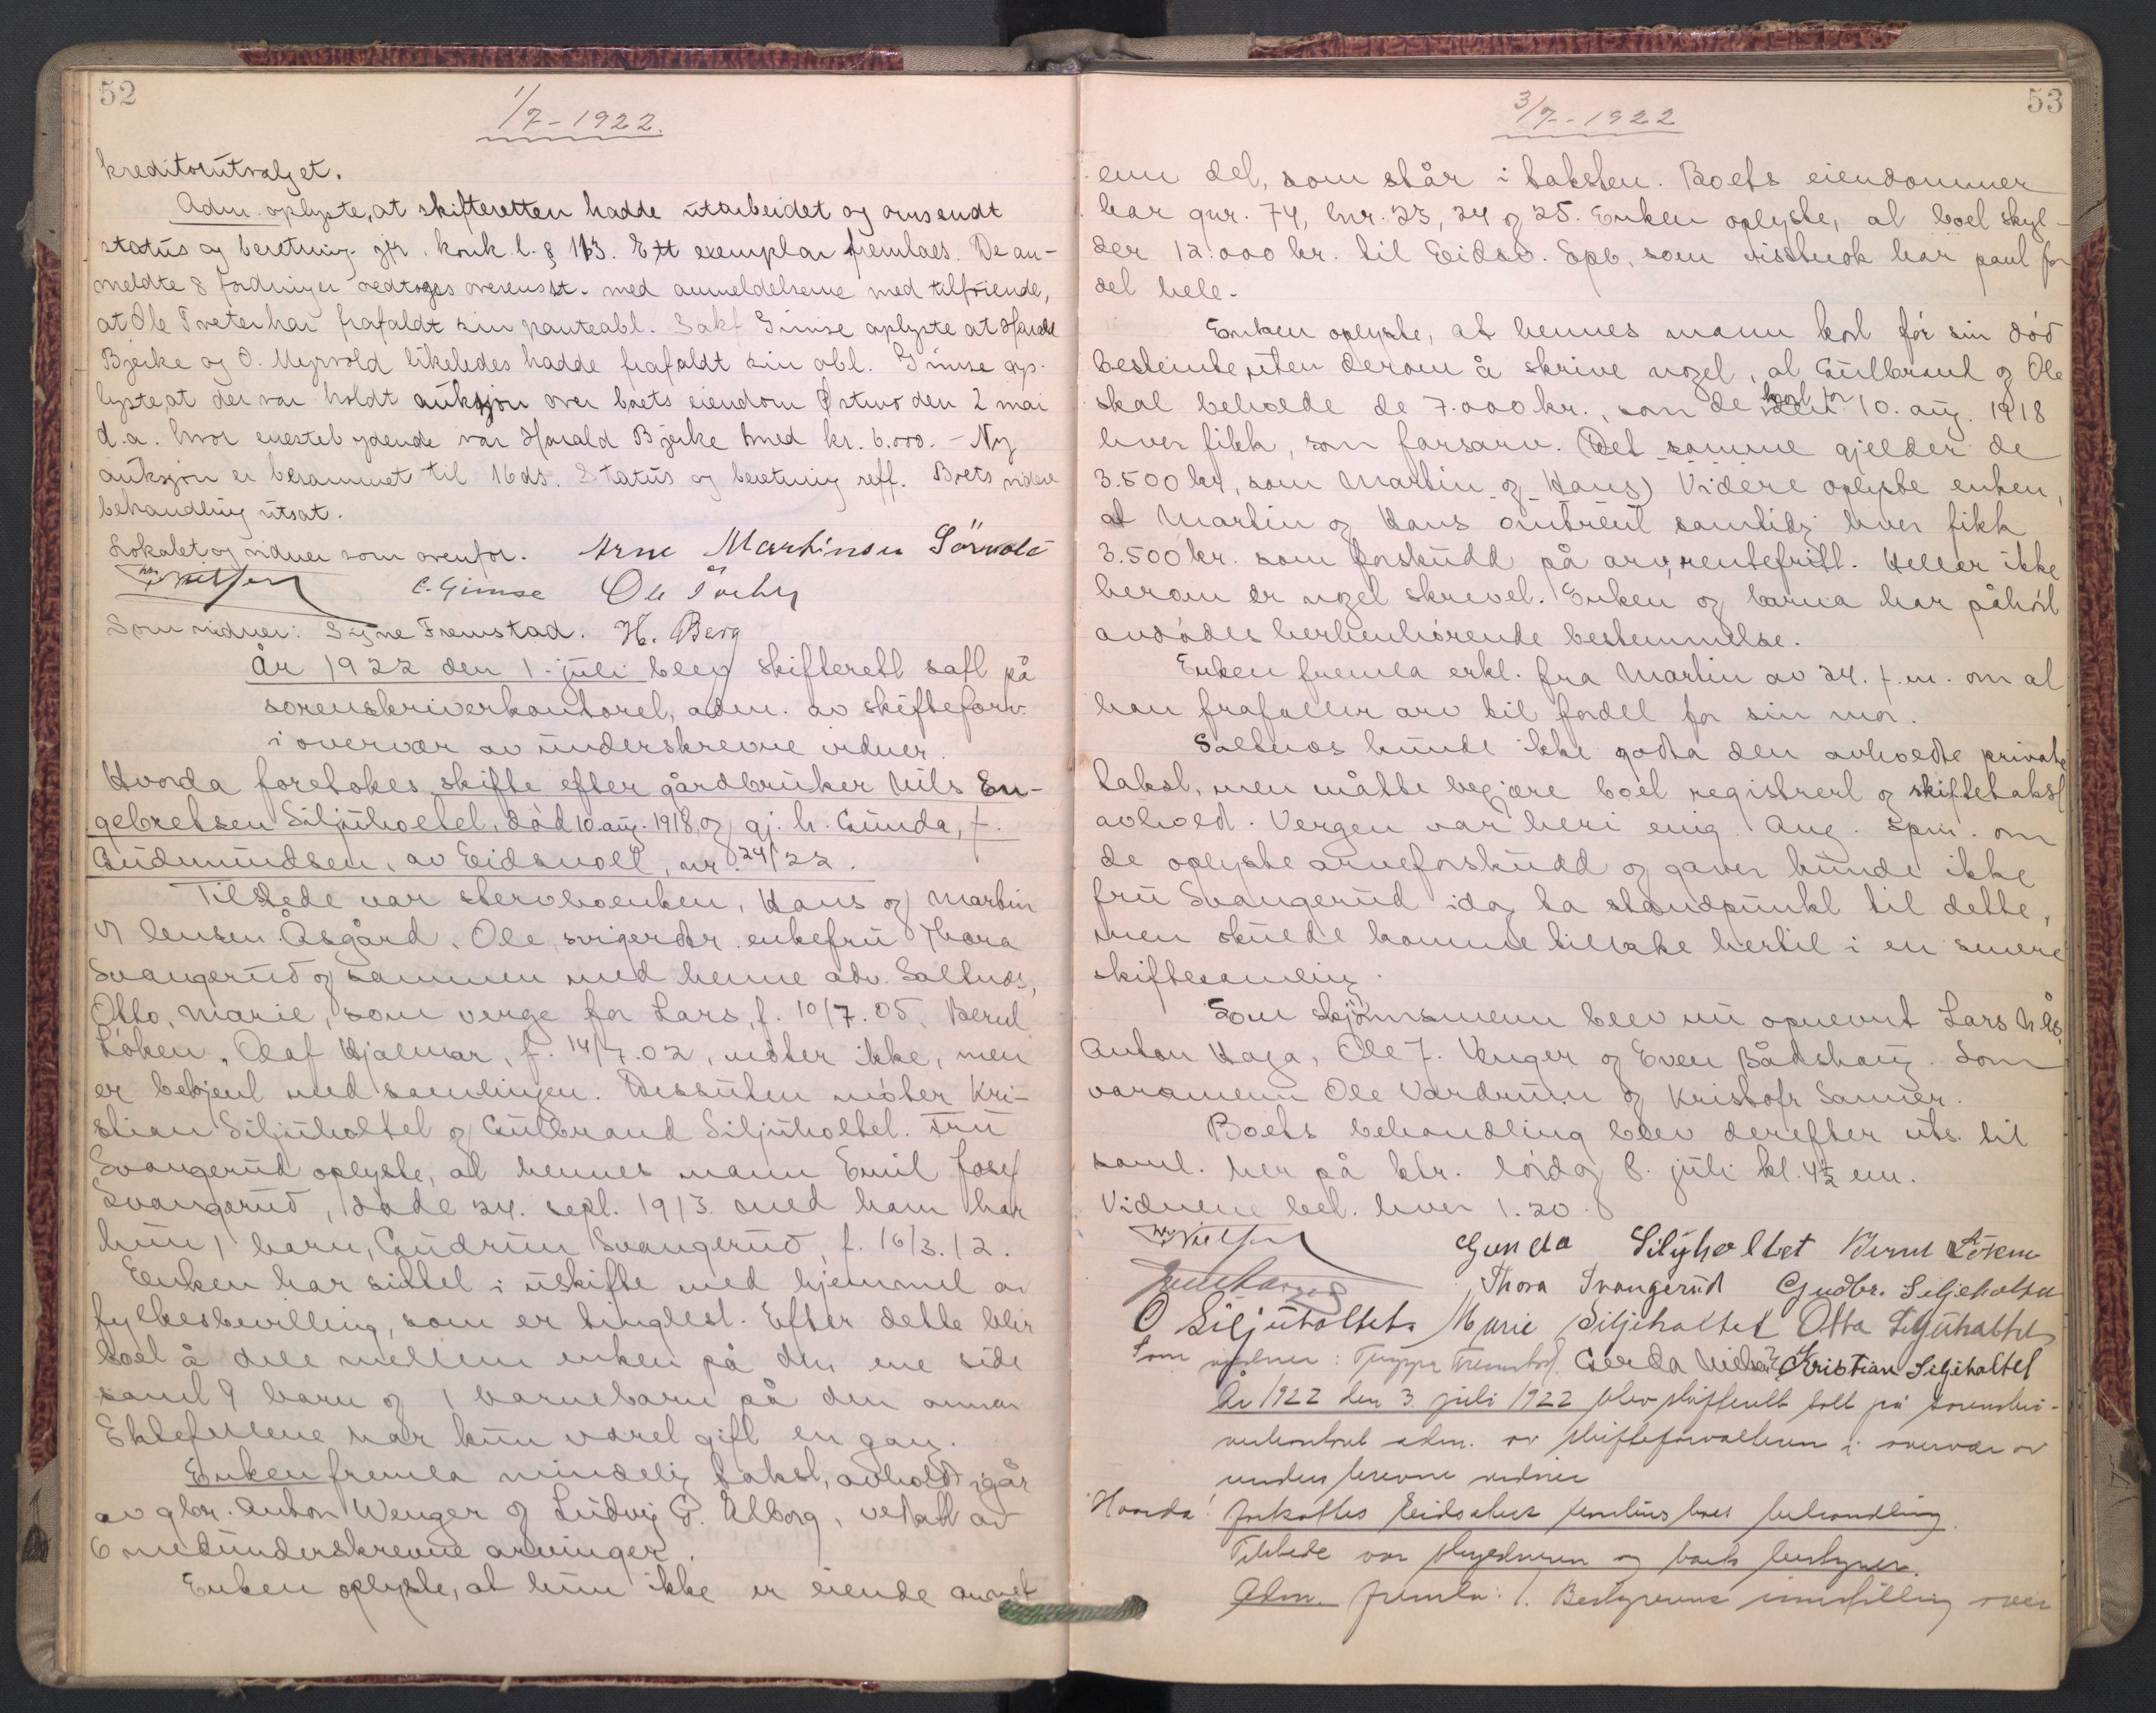 52
1/7-1922.
kreditorutvalget.
Adm. oplyste, at skifteretten hadde utarbeidet og omsendt
status og beretning gjr. konk. l. § 113. Ett exemplar fremlaes. De an-
meldte 8 fordringer vedtoges overensst. med anmeldelserne med tilføiende,
at Ole Tveter har frafaldt sin panteobl. Sakf Gimse oplyste at Harald
Bjerke og O. Myrvold likeledes hadde frafaldt sin obl. Gimse op-
lyste, at der var holdt auksjon over boets eiendom den 2 mai
d.a. hvor enestebydende var Harald Bjerke med kr. 6.000. - Ny
auksjon er berammet til 16 ds. Status og beretning reff. Boets videre
behandling utsat.
Lokalet og vidner som ovenfor. Arne Martinsen
C. Gimse Ole
Som vidner: Signe Fremstad. H. Berg
År 1922 den 1. juli blev skifterett satt på
sorenskriverkontoret, adm. av skifteforv.
i overvær av underskrevne vidner.
Hvorda foretokes skifte efter gårdbruker Nils En-
gebretsen Siljuholtet, død 10. aug. 1918, og gj. h. Gunda, f.
Gudmundsen, av Eidsvoll, nr. 24/22.
Tilstede var stervboenken, Hans og Martin
Åsgård, Ole, svigerdtr. enkefru Thora
Svangerud og sammen med henne adv. Saltnes,
Otto, Marie, som verge for Lars, f. 10/7.05, Bernt
Løken, Olaf Hjalmar, f. 14/7.02, møter ikke, men
er bekjent med samlingen. Dessuten møter Kri-
stian Siljuholtet og Gulbrand Siljuholtet. Fru
Svangerud oplyste, at hennes mann Emil Josef
Svangerud, døde 24. sept. 1913. med ham har
hun 1 barn, Gudrun Svangerud, f. 16/3.12.
Enken har sittet i uskifte med hjemmel av
fylkesbevilling, som er tinglest. Efter dette blir
boet å dele mellem enken på den ene side
samt 9 barn og 1 barnebarn på den annen
Ektefellene har kun været gift en gang.
Enken fremla mindelig takst, avholdt igår
av gbr. Anton Wenger og Ludvig G. Elborg, vedtatt av
6 medunderskrevne arvinger.
Enken oplyste, at hun ikke er eiende annet
53
3/7-1922
enn det, som står i taksten. Boets eiendommer
har gnr. 74, bnr. 23, 24 og 25. Enken oplyste, at boet skyl-
der 12.000 kr. til Eidsv. Spb., som visstnok har pant for
det hele.
Enken oplyste, at hennes mann kort før sin død
bestemte, uten derom å skrive noget, at Gulbrand og Ole
skal beholde de 7.000 kr., som de kort før 10. aug. 1918
hver fikk, som farsarv. (Det samme gjelder de
3.500 kr, som Martin og Hans) Videre oplyste enken,
at Martin og Hans omtrent samtidig hver fikk
3.500 kr. som forskudd på arv, rentefritt. Heller ikke
herom er noget skrevet. Enken og barna har påhørt
avdødes herhenhørende bestemmelse.
Enken fremla erkl. fra Martin av 24. f.m. om at
han frafaller arv til fordel for sin mor.
Saltnes kunde ikke godta den avholdte private
takst, men måtte begjære boet registrert og skiftetakst
avholdt. Vergen var heri enig. Ang. spm. om
de oplyste arveforskudd og gaver kunde ikke
fru Svangerud idag ta standpunkt til dette,
men skulde komme tilbake hertil i en senere
skiftesamling.
Som skjønnsmenn blev nu opnevnt Lars N. Ås,
Anton Haga, Ole J. Venger og Even Bådshaug. Som
varamenn Ole Vardrum og Kristofr Sanner.
Boets behandling blev derefter uts. til
saml. her på ktr. lørdag 8. juli kl. 4½ em.
Vidnene bet. hver 1.20.
Gunda Siljuholtet Bernt Løken
Thora Svangerud Gudbr. Siljeholtet
O Siljuholtet Marie Siljeholtet Otto Siljuholtet
Som vidner: Fremstad. Gerda Nielsen Kristian Siljeholtet
År 1922 den 3. juli 1922 blev skifterett satt på sorenskri-
verkontoret adm. av skifteforvalteren i overvær av
underskrevne vidner
Hvorda: fortsattes boets behandling.
Tilstede var og boets bestyrer.
Adm. fremla: 1. Bestyrerens innstilling over